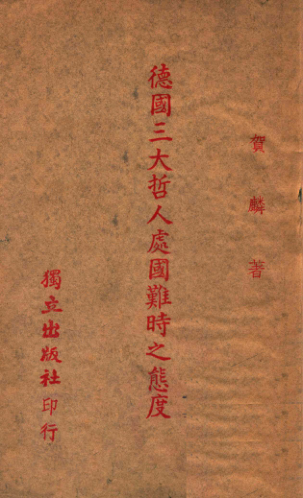 賀麟著
德國三大哲人處國難時之態度
獨立出版社印行